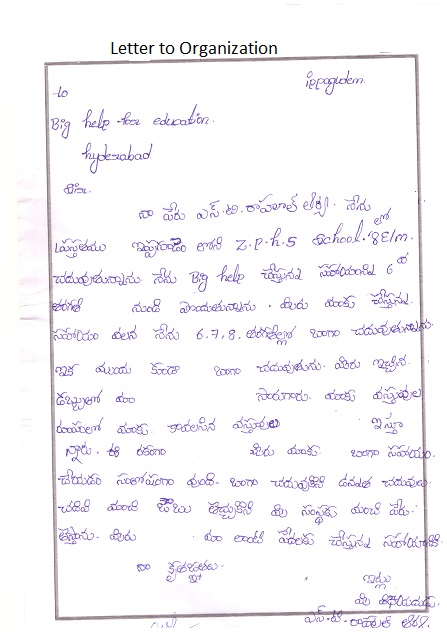 Letter to Organization
ippagudem.
to
Big help for education.
hyderabad
నా పేరు ఎస్.టి. రాహుల్ నేను
లో
ప్రస్తుతము ఇప్పగూడెం లోని Z.P.H.S School. 8 E/m.
చదువుతున్నాను నేను Big help చేస్తున్న సహాయాన్ని 6వ
తరగతి నుండి పొందుతున్నాను. మీరు మాకు చేస్తున్న
సహాయం వలన నేను 6.7.8. తరగతుల్లో బాగా చదువుతున్నాను.
ఇక ముందు కూడా బాగా చదువుతాను. మీరు ఇచ్చిన
డబ్బులతో మా సారుగారు. మాకు వస్తువుల
రూపంలో మాకు కావలసిన వస్తువులు ఇస్తూ
న్నారు. ఈ రకంగా మీరు మాకు బాగా సహాయం
చేయడం సంతోషంగా వుంది. బాగా చదువుకొని ఉన్నత చదువులు
చదివి మంచి జాబు తెచ్చుకొని మీ సంస్థకు మంచి పేరు
తెస్తాను. మీరు మా లాంటి పేదలకు చేస్తున్న సహాయానికి
నా కృతజ్ఞతలు.
ఇట్లు
మీ
ఎస్.టి. రాహుల్